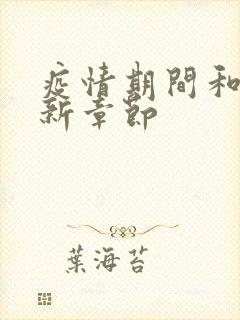 疫情期間和
新章節
葉海苔